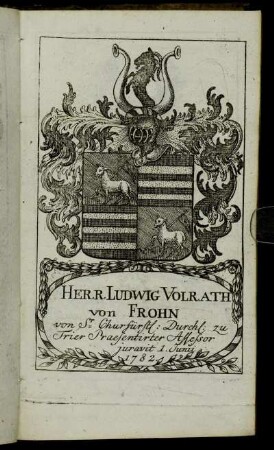 HERR LUDWIG VOLRATH
von FROHN
von Sr. Churfürstl: Durchl: zu
Trier Praesentirter Assessor
juravit 1. Junij
1782